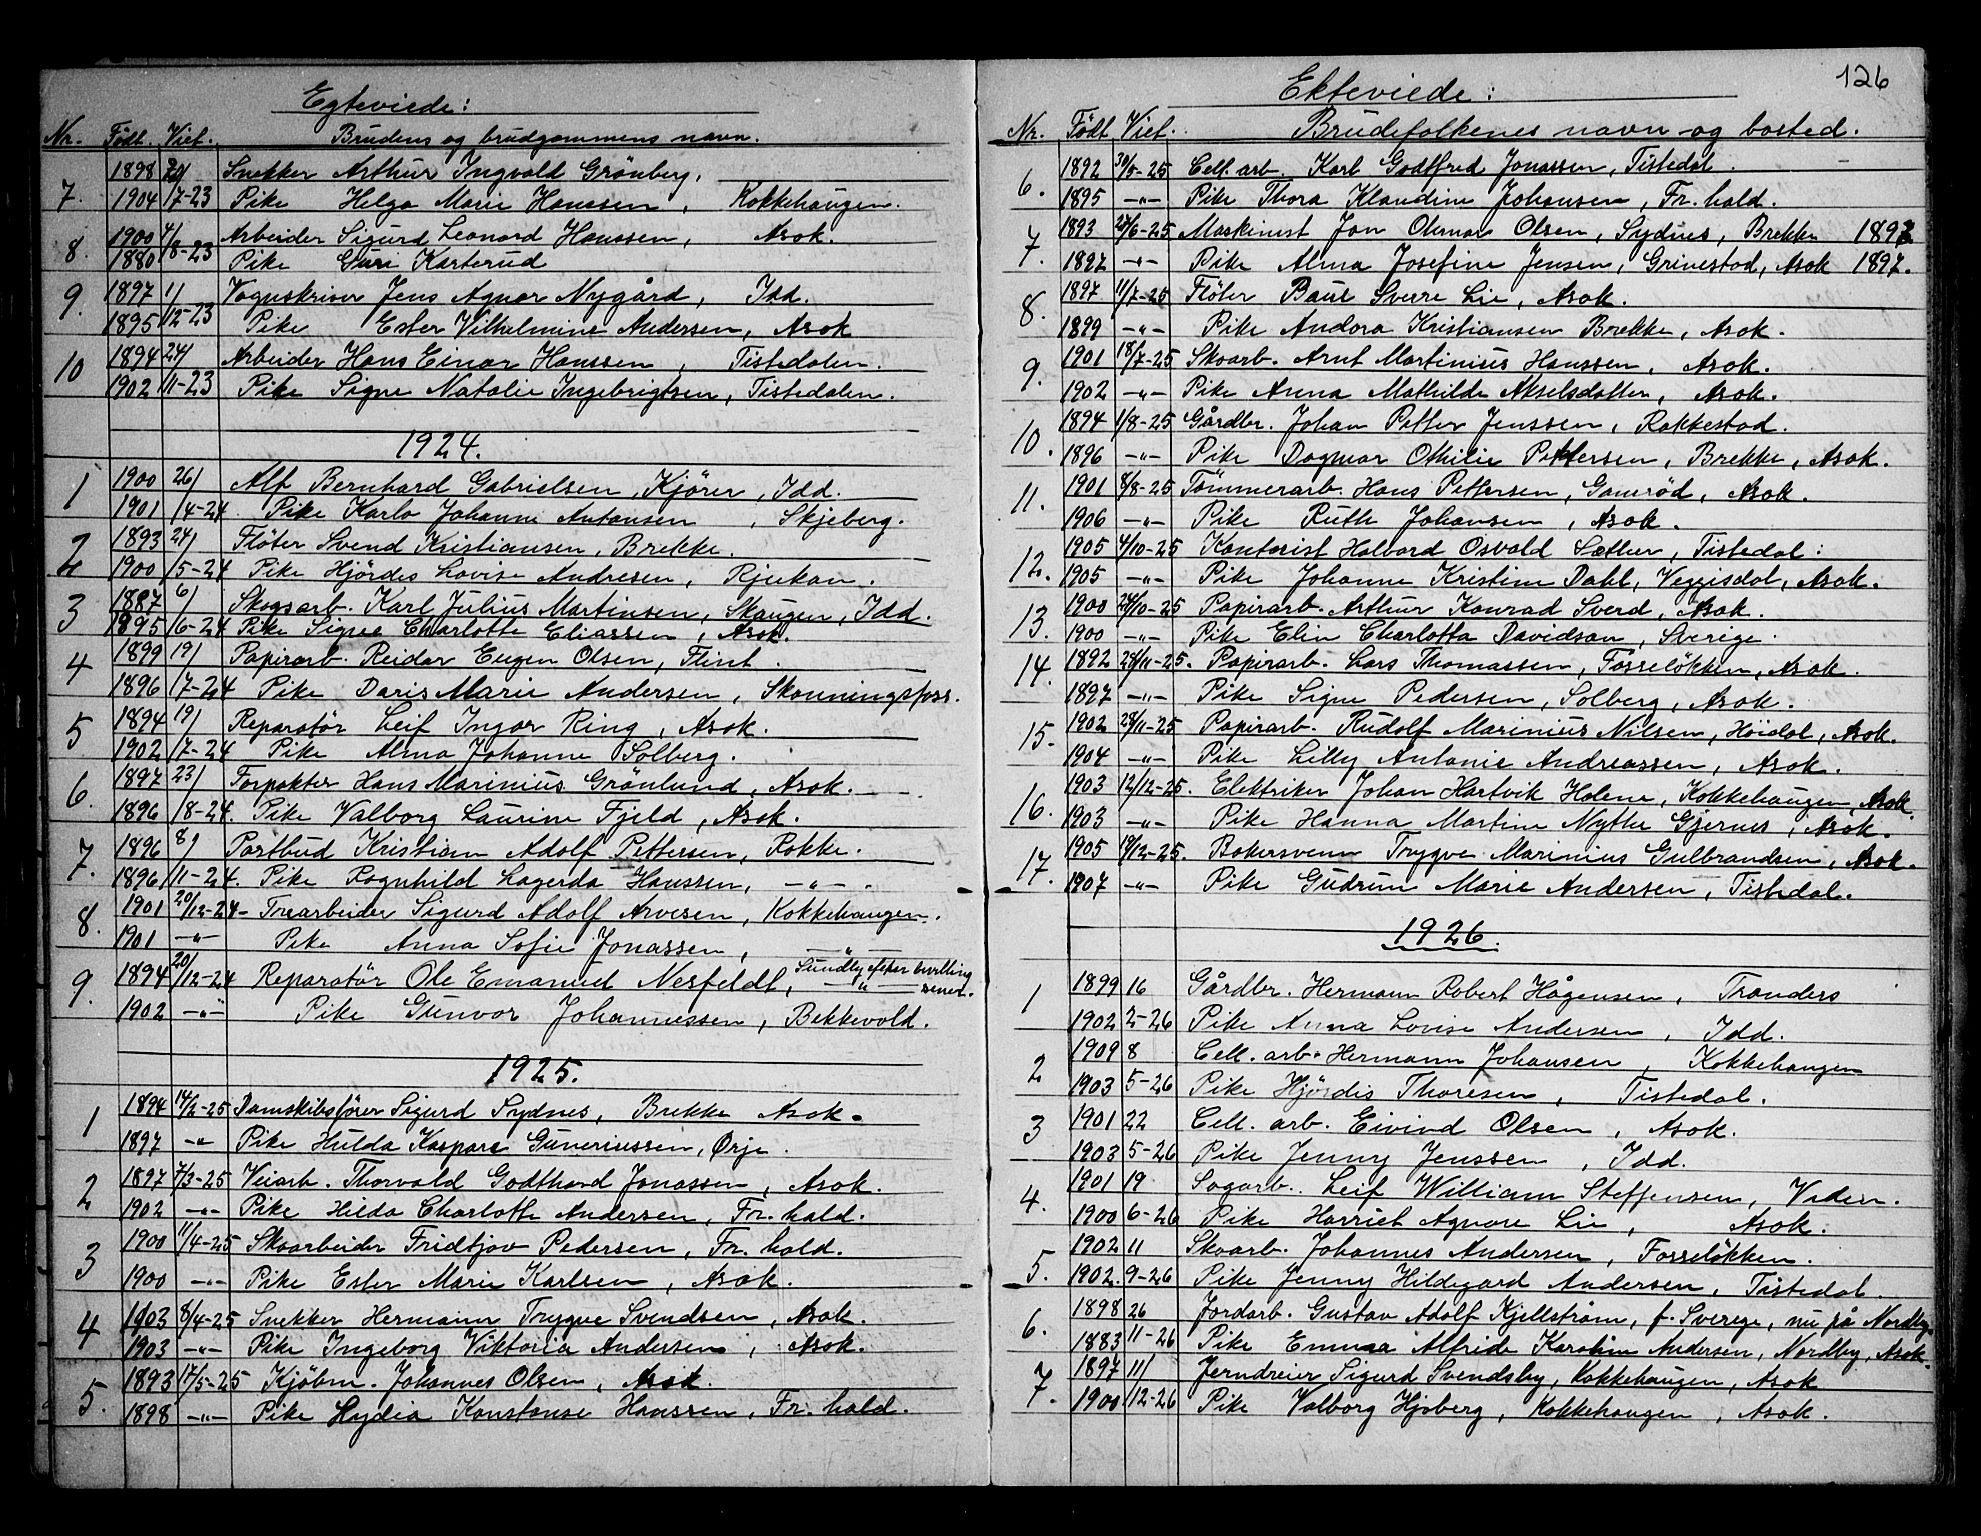 Egteviede:
Nr. Født. Viet. Brudens og brudgommens navn.
1898 20/ Snekker Arthur Ingvald Grönberg,
7. 1904 7-23 Pike Helga Marie Hanssen, Kokkehaugen.
1900 4/ Arbeider Sigurd Leonard Hanssen, Asak.
8. 1880 8-23 Pike Guri Karterud
1897 1/ Vognskriver Jens Agnar Nygård, Idd.
9. 1895 12-23 Pike Ester Vilhelmine Andersen, Asak
1894 24/ Arbeider Hans Einar Hanssen, Tistedalen.
10 1902 11-23 Pike Signe Natalie Ingebrigtsen, Tistedalen.
1924.
1 1900 26/ Alf Bernhard Gabrielsen, Kjörer, Idd.
1901 4-24 Pike Karla Johanne Antonsen, Skjeberg.
2 1893 24/ Flöter Svend Kristiansen, Brekke.
1900 5-24 Pike Hjördis Lovise Andresen, Rjukan.
3 1887 6/ Skogsarb. Karl Julius Martinsen, Skaugen, Idd.
1895 6-24 Pike Signe Charlotte Eliassen, Asak.
4 1899 19/ Papirarb. Reidar Eugen Olsen, Flint.
1896 7-24 Pike Doris Marie Andersen, Skonningsfoss.
5 1894 19/ Reparatør Leif Ingvar Ring, Asak.
1902 7-24 Pike Alma Johanne Solberg.
6. 1897 23/ Forpakter Hans Marinius Grönlund, Asak.
1896 8-24. Pike Valborg Laurine Fjeld, Asak.
7. 1896 8/ Postbud Kristian Adolf Pettersen, Rokke.
1896 11-24. Pike Ragnhild Lagerda Hanssen, —"—.
8. 1901 20/12-24- Trearbeider Sigurd Adolf Arvesen, Kokkehaugen.
1901 —"— Pike Anna Sofie Jonassen, —"—
9. 1894 20/12-24 Reparatör Ole Emanuel Nesfeldt, Sundby efter bevilling —"— senere.
1902 —"— Pike Gunvor Johannessen, Bekkevold.
1925.
1 1894 14/2-25 Damskibsfører Sigurd Sydnes, Brekke Asak.
1897 —"— Pike Hulda Kaspara Guneriussen, Ørje.
2 1897 7/3-25 Veiarb. Thorvald Godthard Jonassen, Asak.
1902 —"— Pike Hilda Charlotte Andersen, Fr. hald.
3 1900 11/4-25 Skoarbeider Fridtjov Pedersen, Fr. hald.
1900 —"— Pike Ester Marie Karlsen, Asak.
4 1903 8/4-25 Snekker Hermann Trygve Svendsen, Asak.
1903 —"— Pike Ingeborg Viktoria Andersen, Asak.
5. 1893 17/5-25 Kjöbm. Johannes Olsen, Asak.
1898 —"— Pike Lydia Konstanse Hanssen, Fr. hald.
126
Ekteviede:
Nr. Født Viet. Brudefolkenes navn og bosted.
6. 1892 30/5-25 Cell. arb. Karl Godtfred Jonassen, Tistedal.
1895 —"— Pike Thora Klaudine Johansen, Fr. hald.
7. 1893 27/6-25 Maskinist Jon Olemar Olsen, Sydnes, Brekke 1893
1897 —"— Pike Alma Josefine Jensen, Grinestad, Asak 1897.
8. 1897 11/7-25 Flöter Paul Sverre Lie, Asak.
1899 —"— Pike Andora Kristiansen Brekke, Asak.
9. 1901 18/7-25 Skoarb. Arnt Martinius Hanssen, Asak.
1902 —"— Pike Anna Mathilde Akselsdatter, Asak.
10. 1894 1/8-25 Gårdbr. Johan Petter Jenssen, Rakkestad.
1896 —"— Pike Dagmar Othilie Pettersen, Brekke, Asak.
11. 1901 8/8-25 Tömmerarb. Hans Pettersen, Gamröd, Asak.
1906 —"— Pike Ruth Johansen, Asak.
12. 1905 4/10-25 Kontorist Halvard Osvald Sæther, Tistedal.
1905 —"— Pike Johanne Kristine Dahl, Veggisdal, Asak.
13. 1900 24/10-25 Papirarb. Arthur Konrad Sverd, Asak.
1900 —"— Pike Elin Charlotta Davidson, Sverige.
14. 1892 28/11-25. Papirarb. Lars Thomassen, Fosselökken, Asak.
1897 —"— Pike Signe Pedersen, Solberg, Asak.
15. 1902 28/11-25 Papirarb. Rudolf Marinius Nilsen, Höidal, Asak.
1904 —"— Pike Lilly Antonie Andreassen, Asak.
16. 1903 12/12-25. Elektriker Johan Hartvik Holene, Kokkehaugen, Asak.
1903 —"— Pike Hanna Martine Nytte Gjernes, Asak.
17. 1905 19/12-25. Bakersvenn Trygve Marinius Gulbrandsen, Asak.
1907 —"— Pike Gudrun Marie Andersen, Tistedal.
1926.
1 1899 16 Gårdbr. Hermann Robert Hågensen, Tranders
1902 2-26 Pike Anna Lovise Andersen, Idd.
2 1909 8 Cell. arb. Hermann Johansen, Kokkehaugen
1903 5-26 Pike Hjördis Thoresen, Tistedal.
3 1901 22 Cell. arb. Eivind Olsen, Asak.
1903 5-26 Pike Jenny Jenssen, Idd.
4. 1901 19 Sagarb. Leif William Steffensen, Veden.
1900 6-26 Pike Harriet Agnare Lie, Asak.
5. 1902 11 Skoarb. Johannes Andersen, Fosselökken.
1902. 9-26 Pike Jenny Hildegard Andersen, Tistedal.
6. 1898 26 Jordarb. Gustav Adolf Kjellström, f. Sverige, nu på Nordby.
1883 11-26 Pike Emma Alfride Karoline Andersen, Nordby, Asak.
7. 1897 11/ Jerndreier Sigurd Svendsby, Kokkehaugen, Asak
1900 12-26 Pike Valborg Hjoberg, Kokkehaugen, Asak.